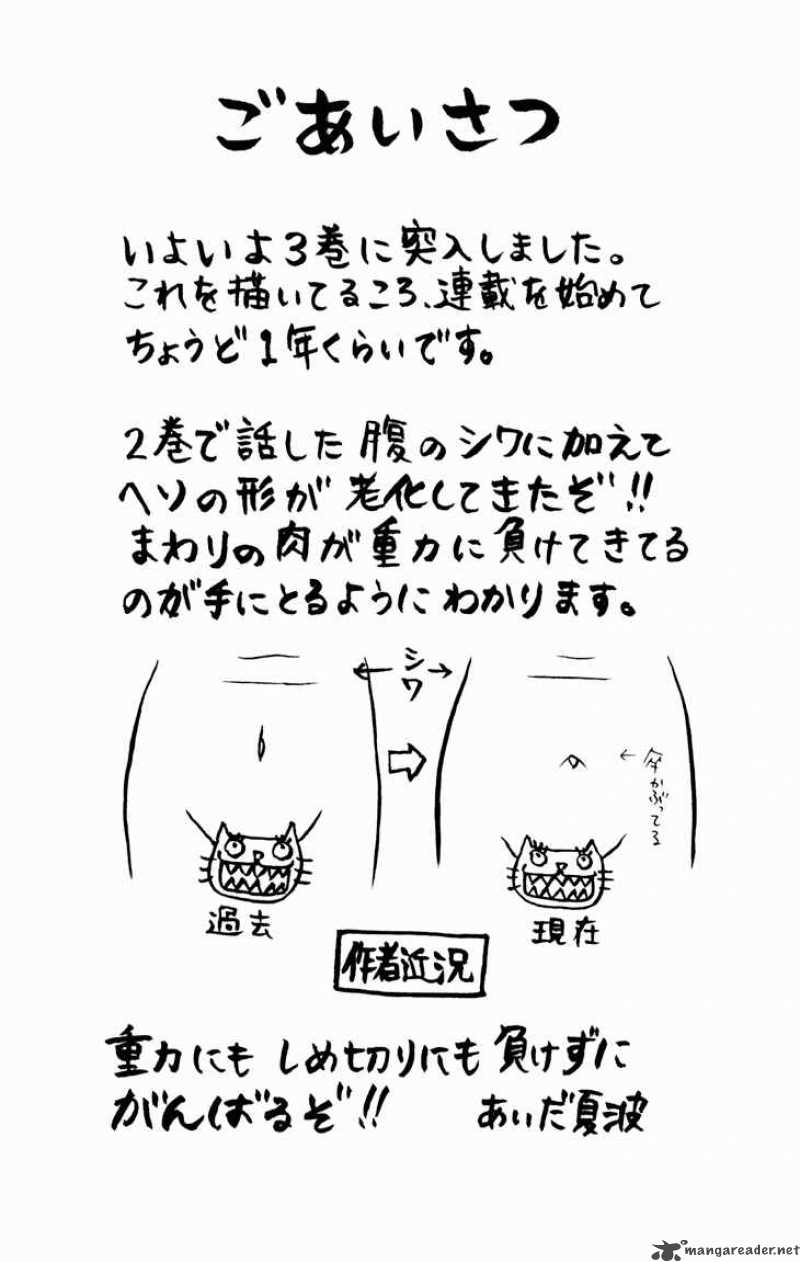 ごあいさつ
いよいよ3巻に突入しました。
これを描いてるころ、連載を始めて
ちょうど1年くらいです。
2巻で話した腹のシワに加えて
ヘソの形が老化してきたぞ!!
まわりの肉が重力に負けてきてる
のが手にとるようにわかります。
←シワ→
←今かぶってる
過去
現在
作者近況
重力にもしめ切りにも負けずに
がんばるぞ!!
あいだ夏波
mangareader.net